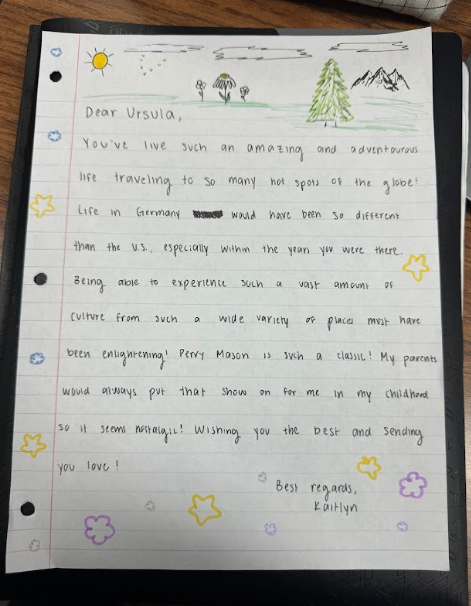 Dear Ursula,
You've live such an amazing and adventurous
life traveling to so many hot spots of the globe!
Life in Germany would have been so different
than the U.S., especially within the years you were there.
Being able to experience such a vast amount of
culture from such a wide variety of places must have
been enlightening! Perry Mason is such a classic! My parents
would always put that show on for me in my childhood
so it seems nostalgic! Wishing you the best and sending
you love!
Best regards,
Kaitlyn